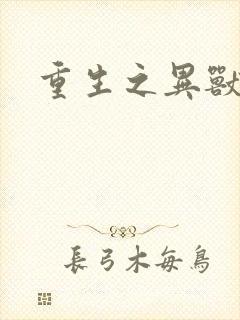 重生之異獸
長弓木每鳥